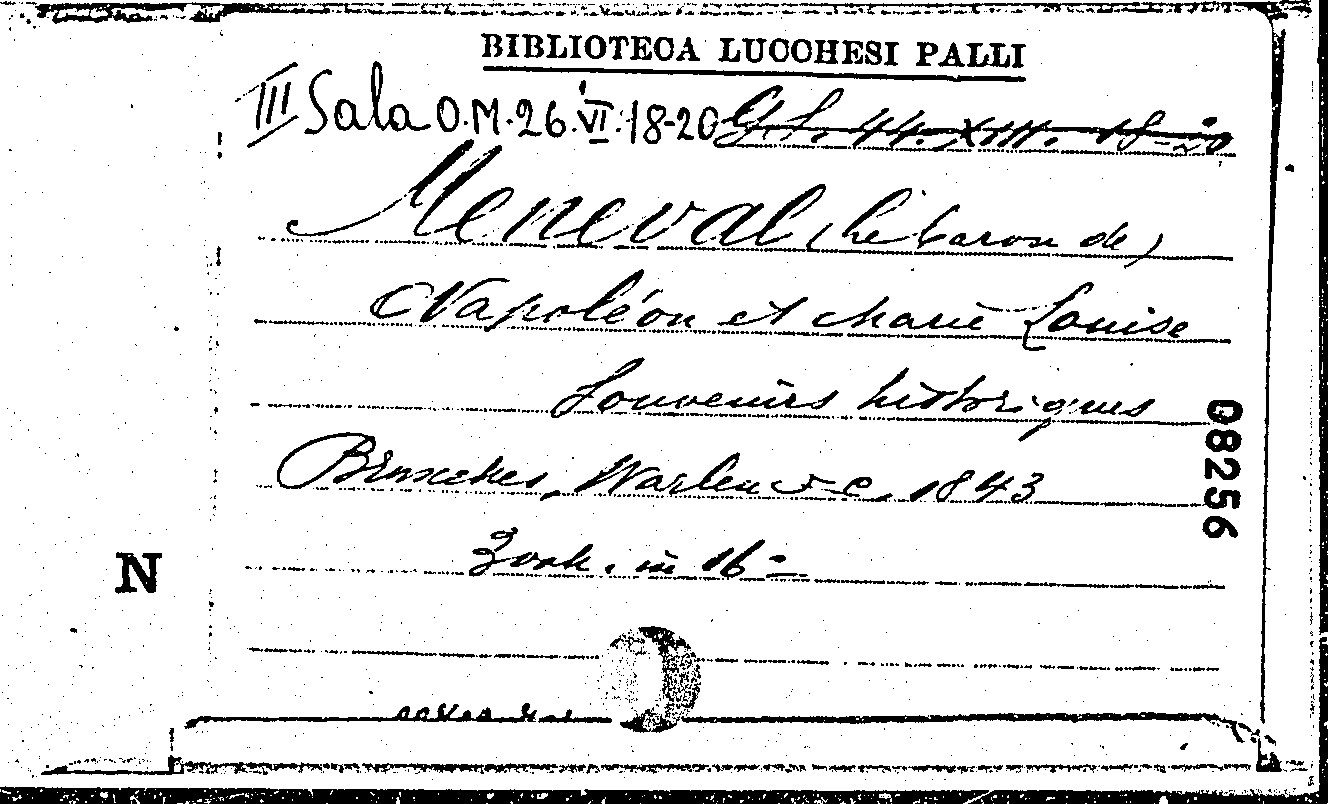 BIBLIOTECA LUCCHESI PALLI
III Sala O.M.26.VI.18-20 G.S. 44. XIII. 18-20
Meneval (le baron de)
Napoléon et Marie Louise
Souvenirs historiques
Bruxelles, Warlen et C. 1843
3 vol. in 16º
08256
N